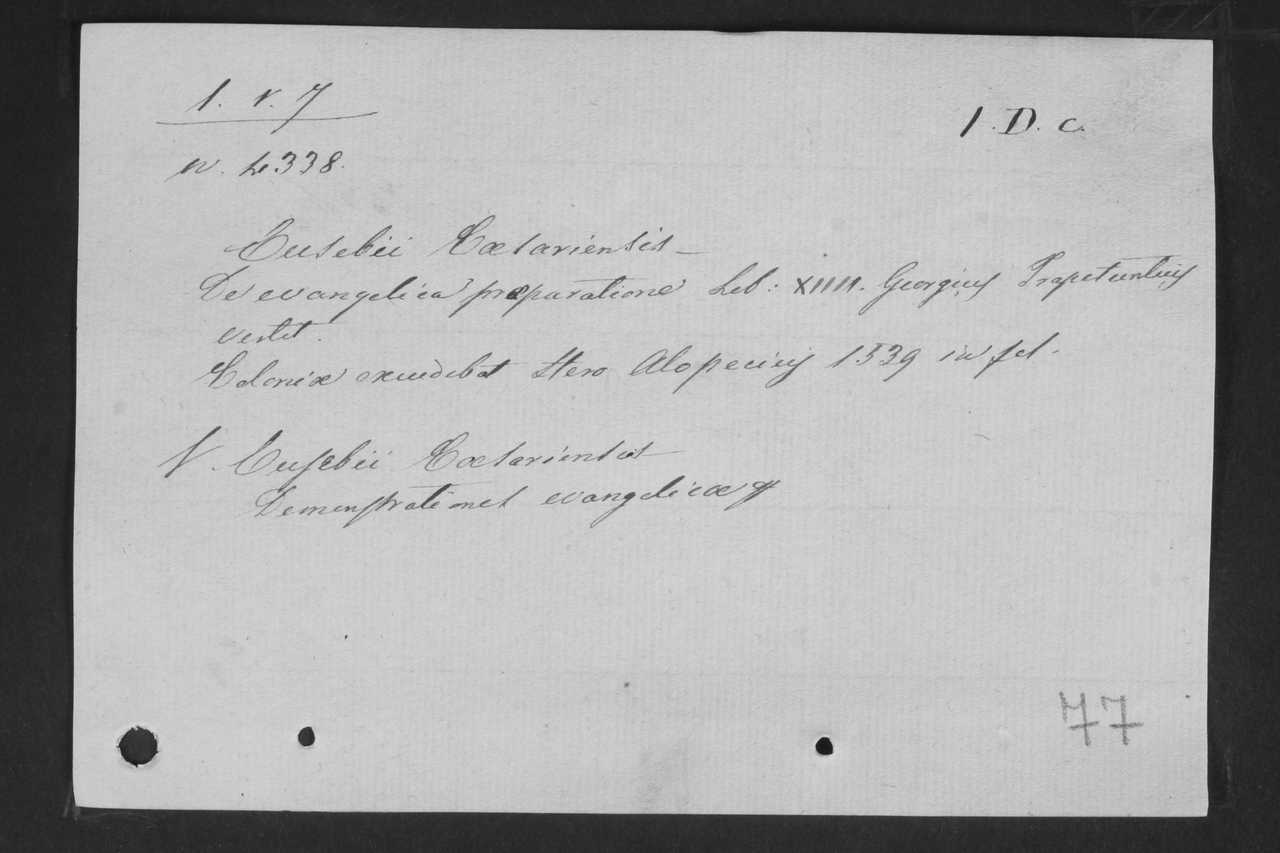 1. v. 7
1. D. c.
N. 4338.
Eusebii Cæsariensis
De evangelica præparatione Lib: XIIII. Georgius Trapetuntius
vertit.
Coloniæ excudebat Hero Alopecius 1539 in fol.
V. Eusebii Cæsariensis
Demonstrationes evangelicæ
77